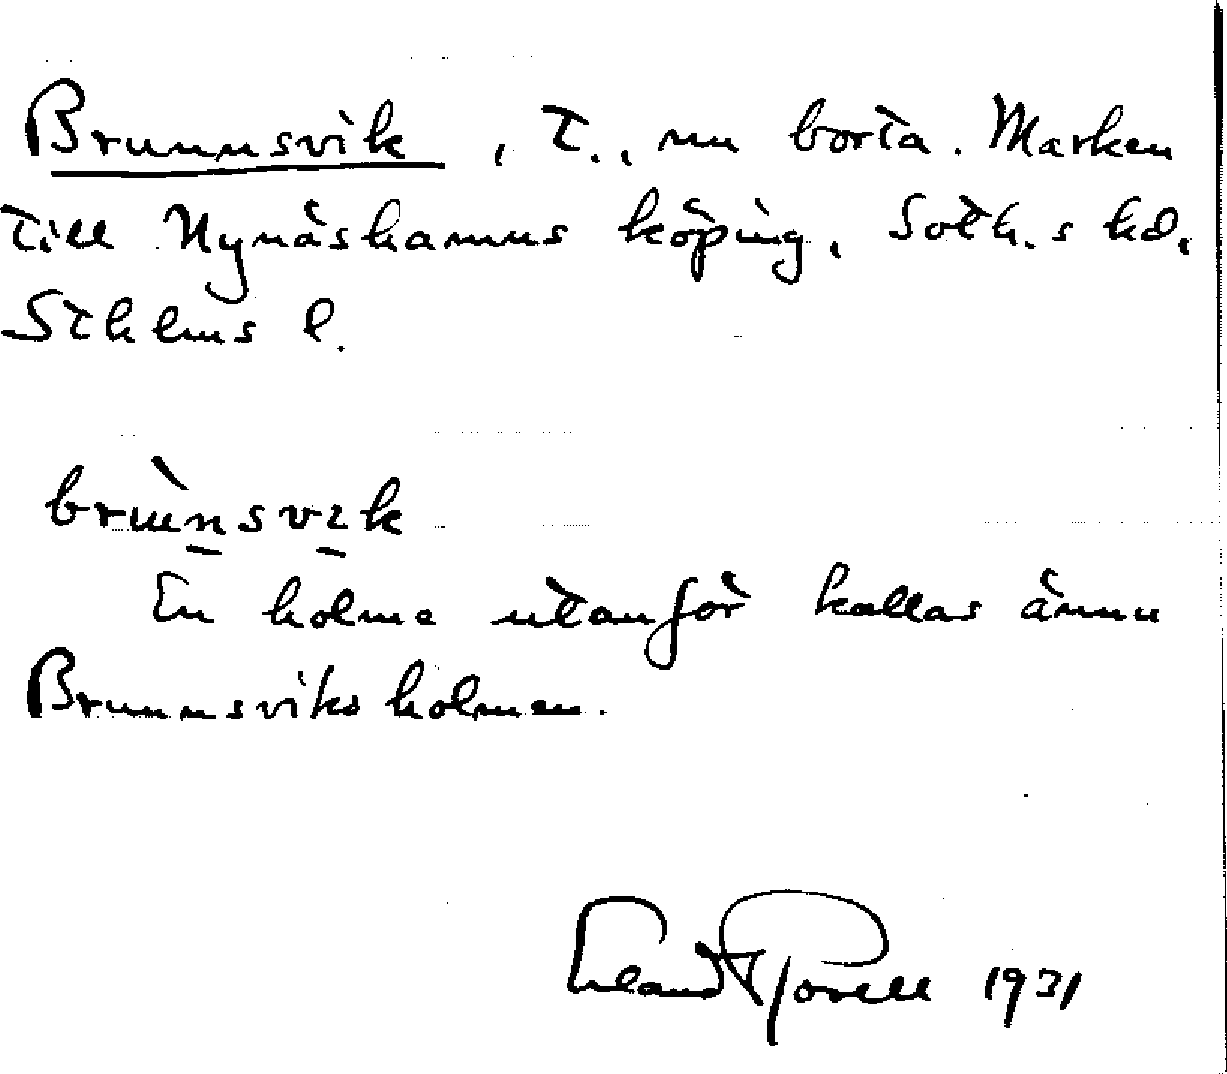 Brunnsvik, t., nu borta. Marken
till Nynäshamns köping, Soth.s hd,
Sthlms l.
brùn̲svi̲k
En holme utanför kallas ännu
Brunnsviksholmen.
Erland Rosell 1931